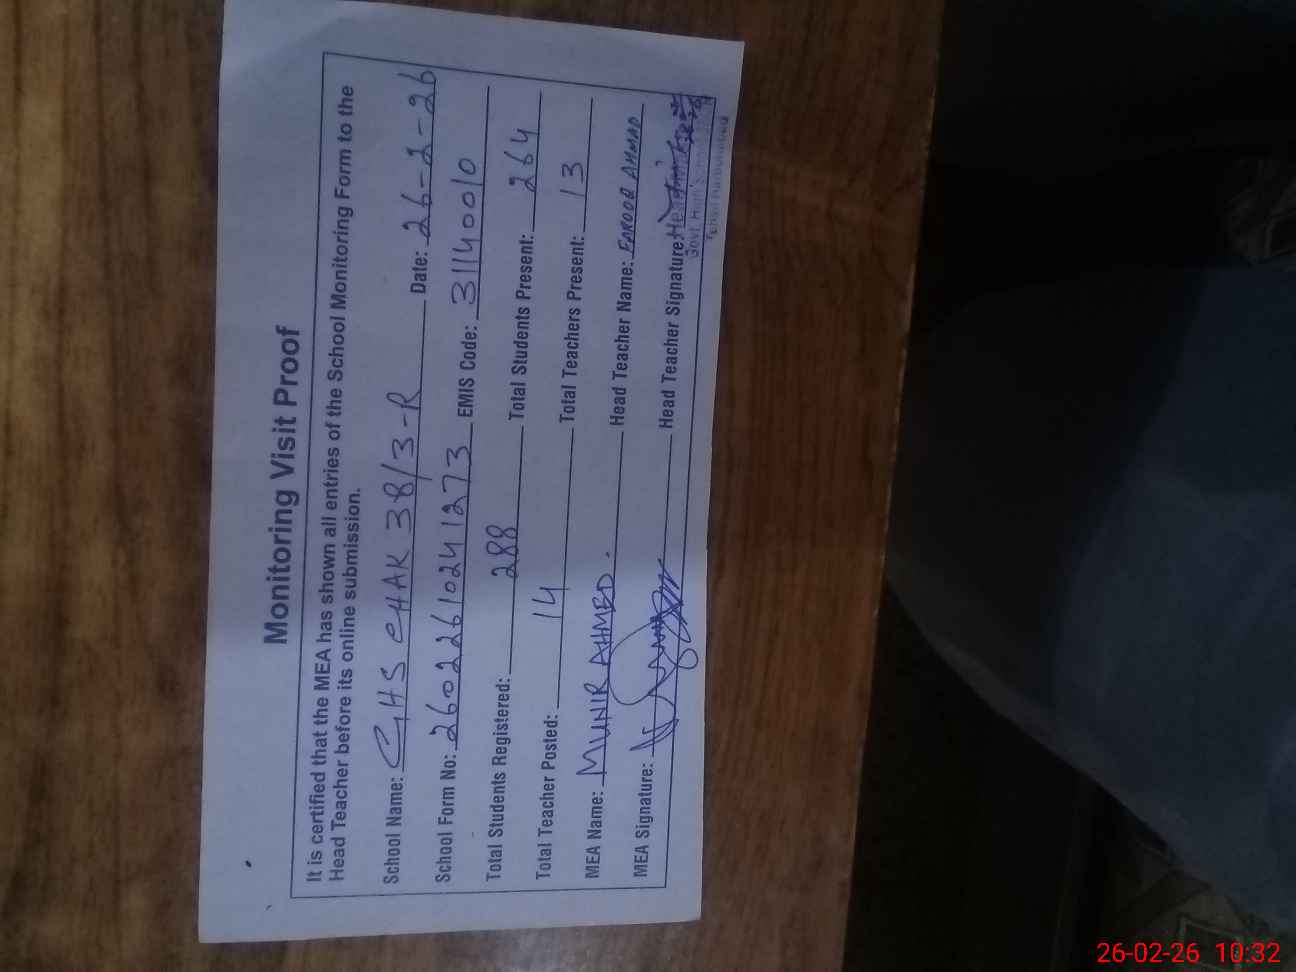 Monitoring Visit Proof
It is certified that the MEA has shown all entries of the School Monitoring Form to the
Head Teacher before its online submission.
School Name: GHS CHAK 38/3-R Date: 26-2-26
School Form No: 26022610241273 EMIS Code: 31140010
Total Students Registered: 288 Total Students Present: 264
Total Teacher Posted: 14 Total Teachers Present: 13
MEA Name: MUNIR AHMED. Head Teacher Name: FAROOQ AHMAD
MEA Signature: Head Teacher Signature:
Govt. High School
26-02-26 10:32